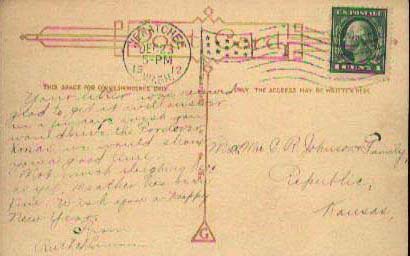 WENATCHEE
DEC 23
5-PM
1912
WASH.
U.S. POSTAGE
1 CENT 1
THIS SPACE FOR CORRESPONDENCE ONLY. ONLY THE ADDRESS MAY BE WRITTEN HERE.
Your letter was
glad to get it will answer
in a few wish you
would
Xmas we would show
you a good time.
Not much sleighing here
as yet. Weather has been
fine. Wish you a happy
New Year.
From
Mr. & Mrs. C. R. Johnson & Family,
Republic,
Kansas,
G